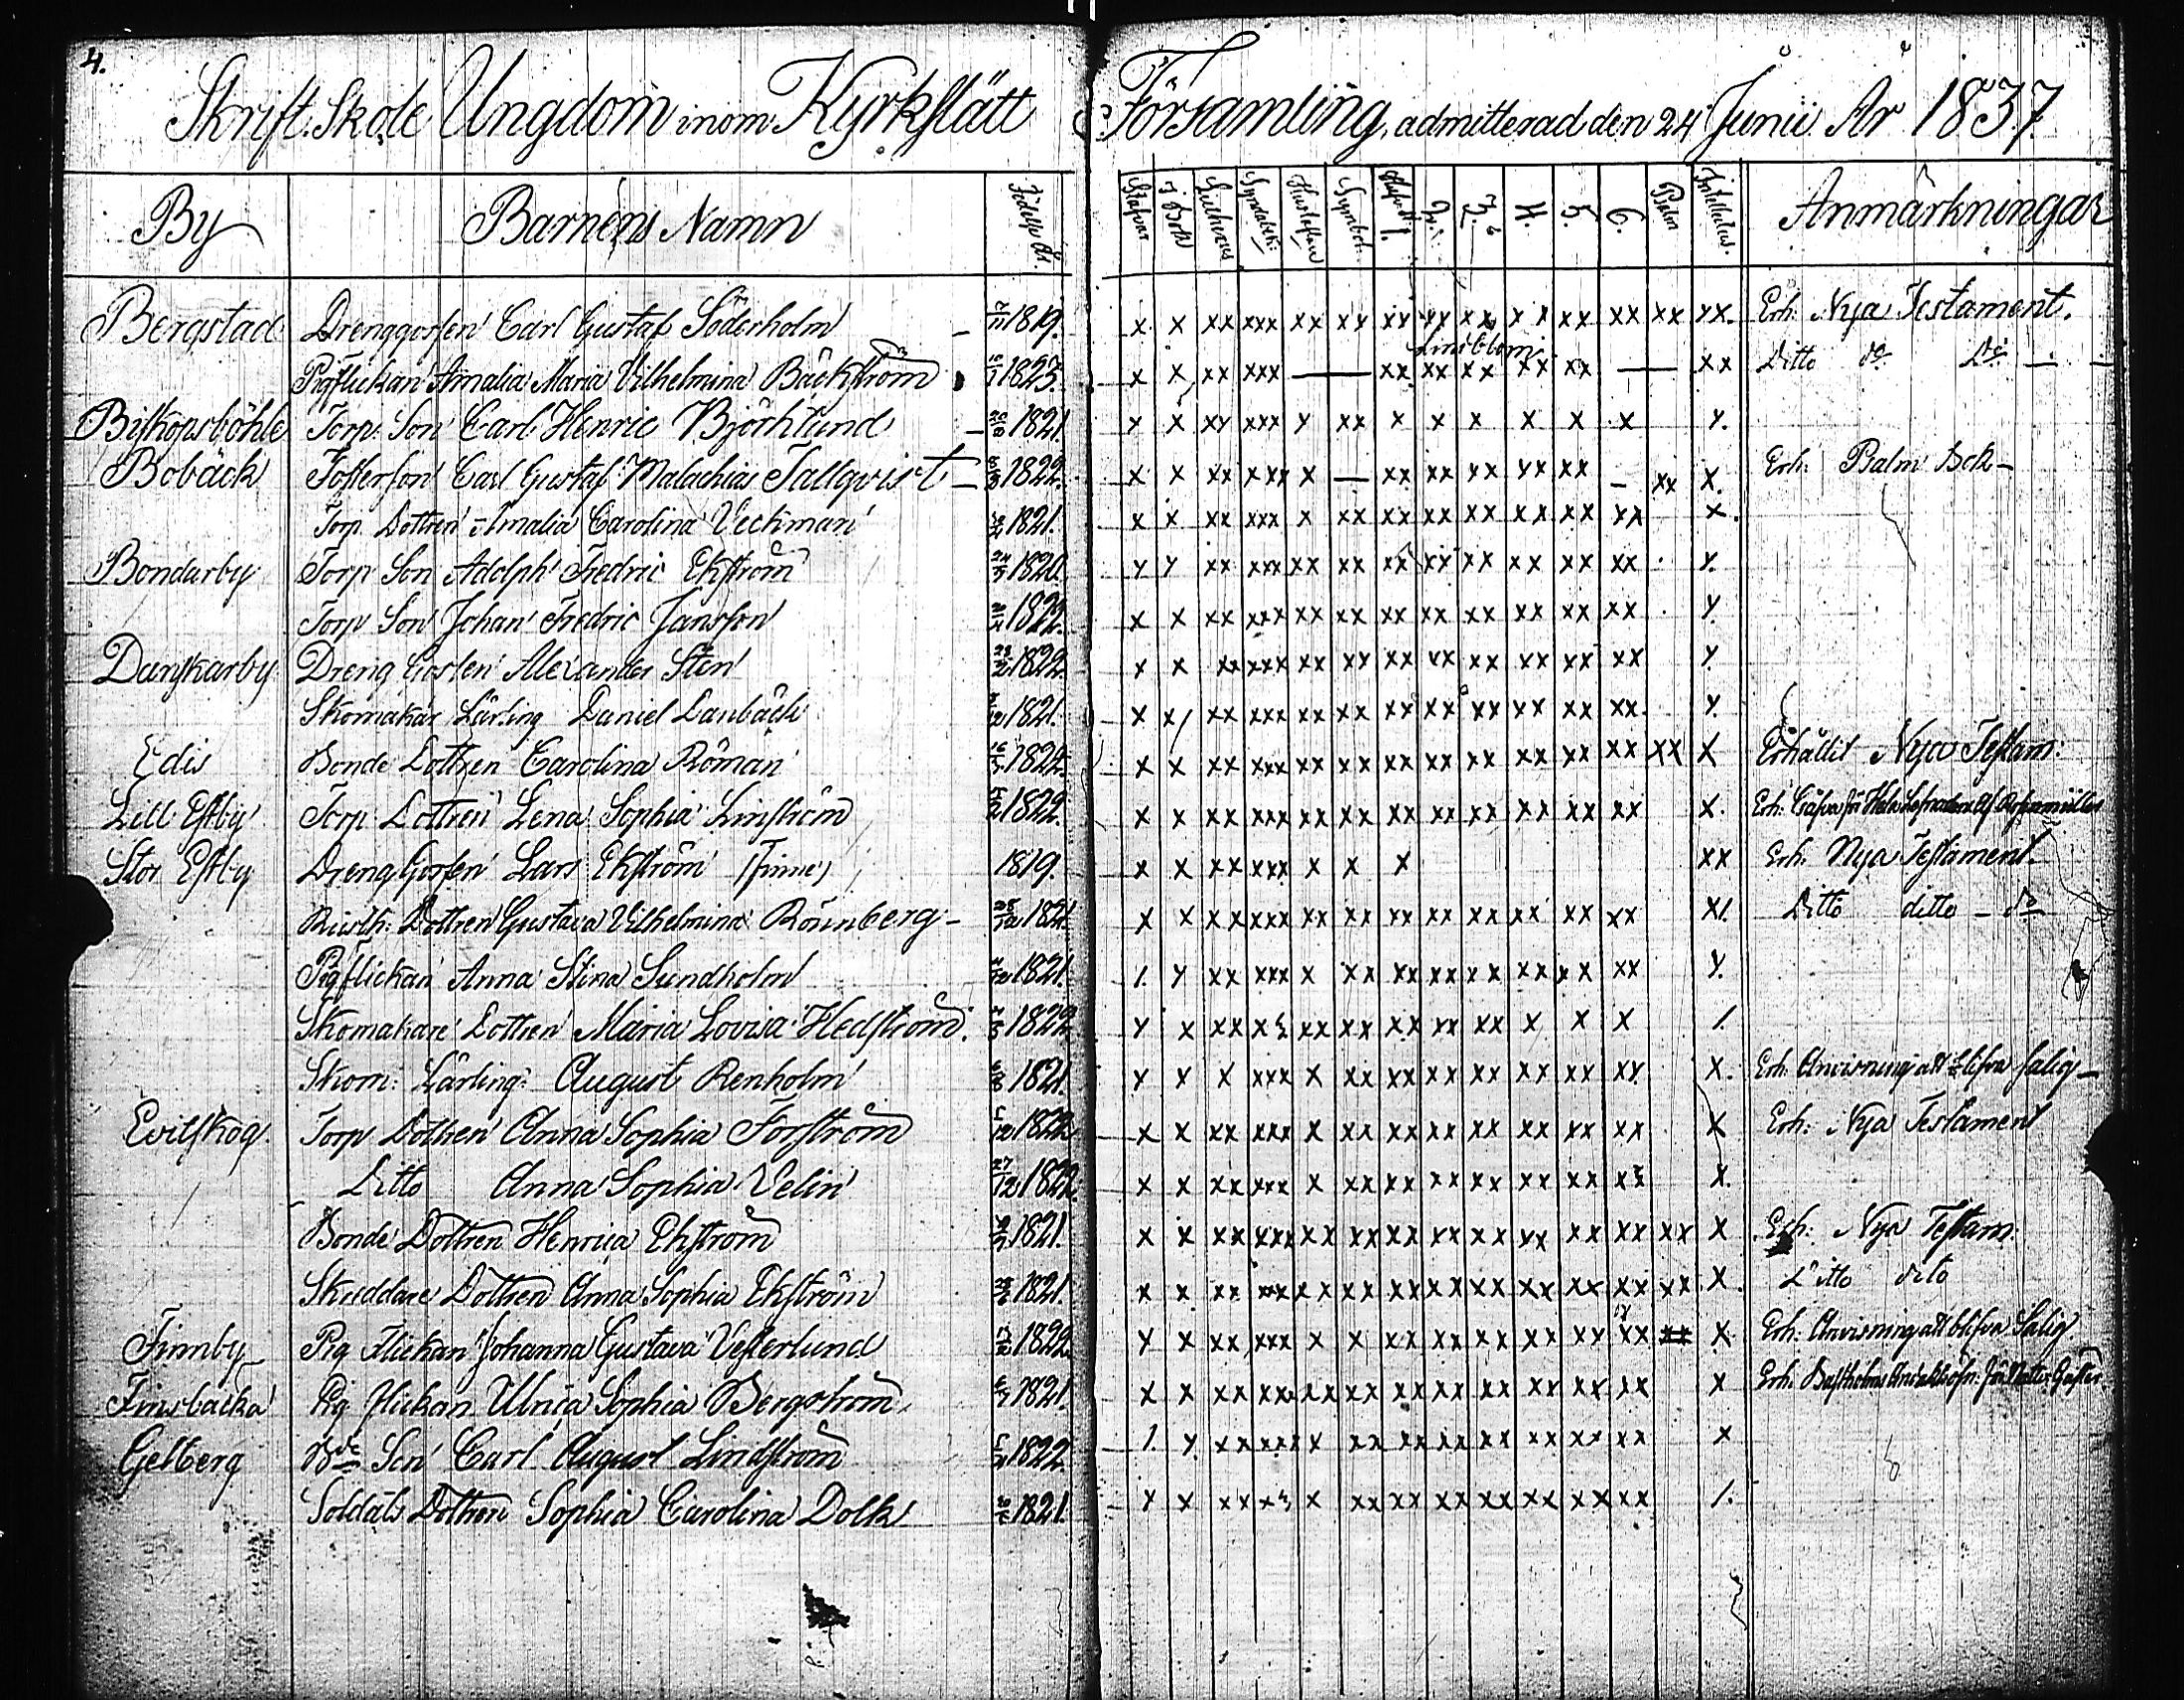 4.
Skrift: Skole Ungdom inom Kyrkslätt Församling, admitterad den 24 Junii År 1837.
By Barnens Namn Födelse År. Stafvar i Bok Lutherus Syndabek: Hustaflan Symbol. 1. 2. 3. 4. 5. 6. Psalm Intellectus. Anmärkningar
Bergstad Drenggossen Carl Gustaf Söderholm 1819. x x xx xxx xx xx xx xx xx x x xx xx xx xx. Erh: Nya Testament.
Lindblom
Pigflickan Amalia Maria Vilhelmina Bäckström 1823. x x xx xxx — xx xx xx xx xx — xx Ditto do Do —
Biskopsböhle Torp: Son Carl Henric Björklund 1821. x x xx xxx x xx x x x x x x x.
Bobäck Fosterson Carl Gustaf Malachias Tallqvist 1822. x x xx xxx x — xx xx xx xx xx – xx x. Erh: Psalm Bok –
Torp Dottren Amalia Carolina Veckman 1821. x x xx xxx x xx xx xx xx xx xx xx x.
Bondarby Torp Son Adolph Fredric Ekström 1820. x x xx xxx xx xx xx xx xx xx xx xx x.
Torp Son Johan Fredric Jansson 1822. x x xx xxx xx xx xx xx xx xx xx xx x.
Danskarby Dreng Gossen Alexander Sten 1822. x x xx xxx xx xx xx xx xx xx xx xx x.
Skomakar Lärling Daniel Lanbäck 1821. x x xx xxx xx xx xx xx xx xx xx xx x.
Edis Bonde Dottren Carolina Röman 1822. x x xx xxx xx xx xx xx xx xx xx xx xx x Erhållit Nya Testam:
Lill Estby Torp Dottren Lena Sophia Linström 1822. x x xx xxx xx xx xx xx xx xx xx xx x. Erh:
Stor Estby Dreng Gossen Lars Ekström (Finne) 1819. x x xx xxx x x x xx Erh: Nya Testament.
Rusth: Dottren Gustava Vilhelmina Rönnberg – 28/12 1821. x x xx xxx xx xx xx xx xx xx xx xx x1. Ditto ditto – do
Pigflickan Anna Stina Sundholm 1821. 1. x xx xxx x xx xx xx xx xx xx xx x.
Skomakare Dottren Maria Lovisa Hedström. 1822. x x xx x xx xx xx xx xx x x x 1.
Skom: Lärling: August Renholm 1821. x x x xxx x xx xx xx xx xx xx xx x. Erh: Anvisning att blifva salig –
Evitskog. Torp Dottren Anna Sophia Forström 1822. x x xx xxx x xx xx xx xx xx xx xx x Erh: Nya Testament
Ditto Anna Sophia Velin 27/12 1822. x x xx xxx x xx xx xx xx xx xx xx x.
Bonde Dottren Henrica Ekström 1821. x x xx xxx xx xx xx xx xx xx xx xx xx x Erh: Nya Testam:
Skräddare Dottren Anna Sophia Ekström 1821. x x xx xxx xx xx xx xx xx xx xx xx xx x Ditto dito
Finnby Pig Flickan Johanna Gustava Vesterlund 1822. x x xx xxx x x xx xx xx xx xx xx xx x Erh: Anvisning att blifva Salig
Finsbacka Pig flickan Ulrica Sophia Bergström, 1821. x x xx xxx xx xx xx xx xx xx xx xx x Erh:
Gelberg Bde Son Carl August Lindström 1822. 1. x xx xxx x xx xx xx xx xx xx xx x
Soldats Dottren Sophia Carolina Dolk 1821. x x xx x x xx xx xx xx xx xx xx 1.